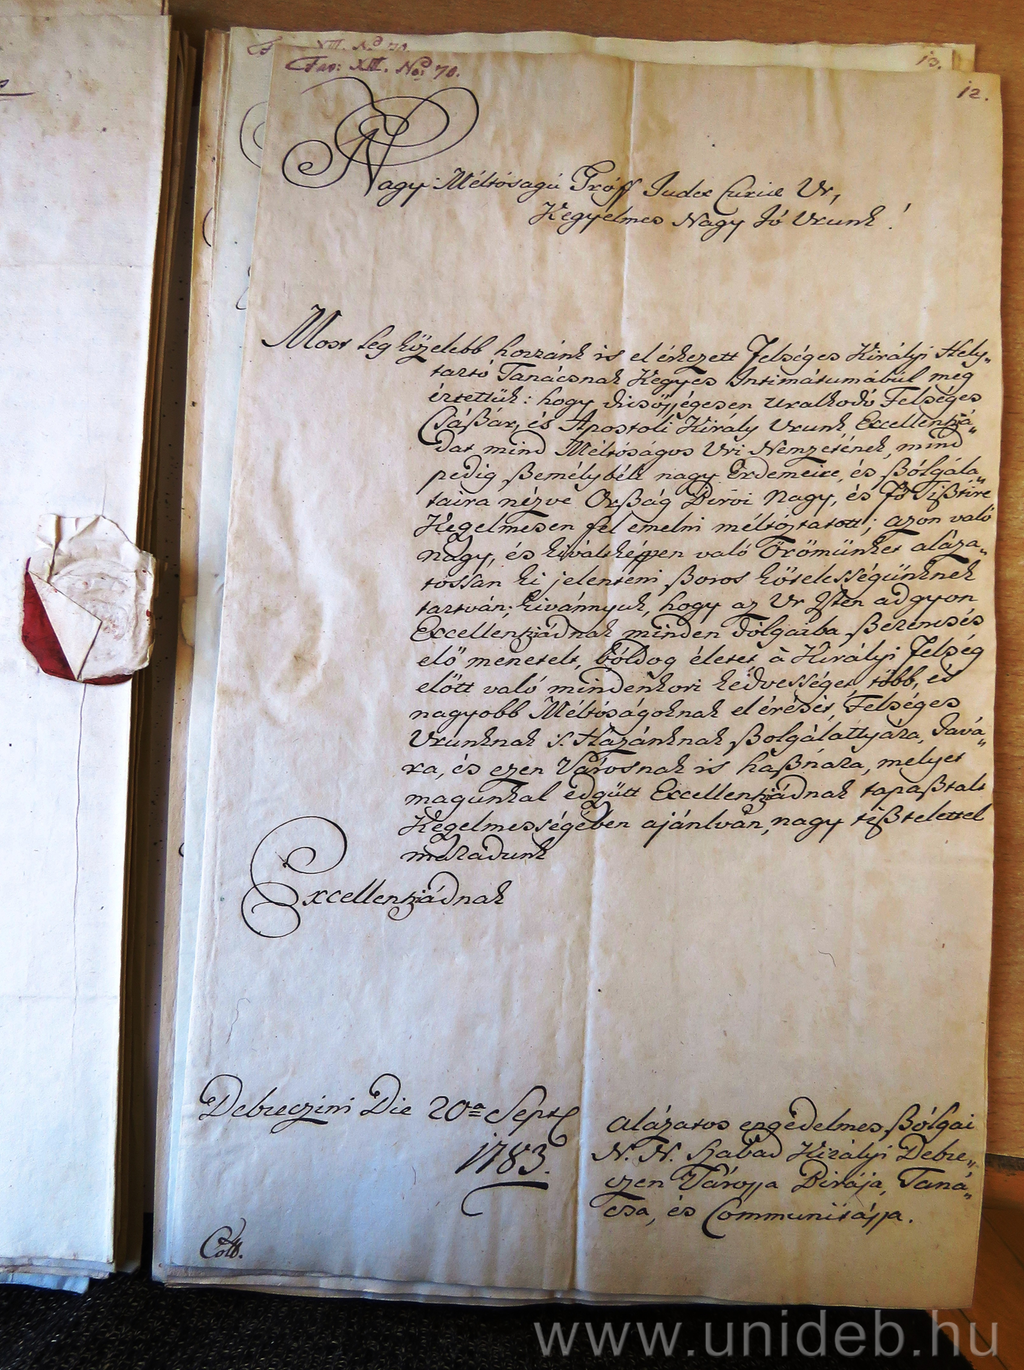 Fas: XIII. No: 70.
13.
12.
Nagy Méltóságú Gróff Judex Curiae Ur,
Kegyelmes Nagy Jó Urunk!
Most leg közelebb hozzánk is el érkezett Felséges Királyi Hely„
tartó Tanácsnak Kegyes Intimátumábúl meg
értettük: hogy dicsősségesen uralkodó Felséges
Császár, és Apostoli Király Urunk Excellentziá„
dat mind Méltóságos Uri Nemzetének, mind
pedig ßemélybéli nagy Érdemeire, és ßólgála„
taira nézve Orßág Birói Nagy, és Fő Tißtire
Kegelmesen fel emelni méltóztatott; azon való
nagy, és kiváltképpen való Örömünket aláza„
tossan ki jelenteni ßoros kötelességünknek
tartván; kivánnyuk, hogy az Ur Isten adgyon
Excellentziádnak minden dolgaiba ßerencsés
elő menetelt, bóldog életet, à Királyi Felség
előtt való mindenkori kedvességet, több, és
nagyobb Méltóságoknak el érését Felséges
Urunknak 's Hazánknak ßolgálattyára, javá„
ra, és ezen Városnak is haßnára, melyet
magunkal edgyütt Excellentziádnak tapaßtalt
Kegelmességében ajánlván, nagy tißtelettel
maradunk
Excellentziádnak
Debreczini Die 20a Sept
1783.
alázatos engedelmes ßólgai
N. N. Szabad Királyi Debre„
czen Várossa Birája, Taná„
csa, és Communitássa.
Coll.
www.unideb.hu